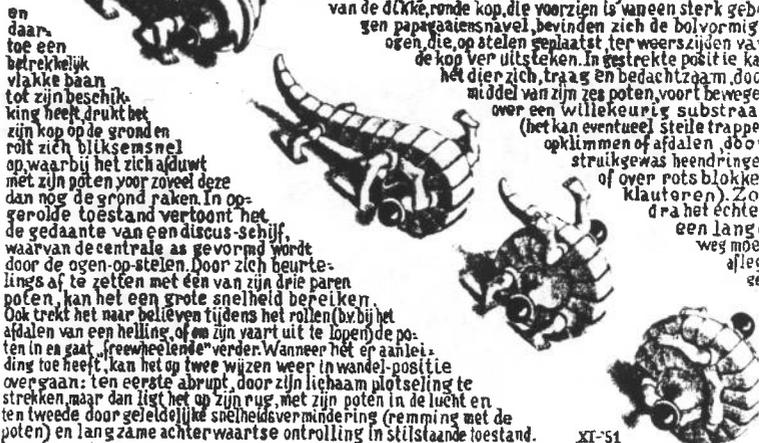 en
daar-
toe een
betrekkelijk
vlakke baan
tot zijn beschik-
king heeft, drukt het
zijn kop op de grond en
rolt zich bliksemsnel
op, waarbij het zich afduwt
met zijn poten voor zoveel deze
dan nog de grond raken. In op-
gerolde toestand vertoont het
de gedaante van een discus-schijf,
waarvan de centrale as gevormd wordt
door de ogen-op-stelen. Door zich beurte-
lings af te zetten met één van zijn drie paren
poten, kan het een grote snelheid bereiken.
Ook trekt het naar believen tijdens het rollen (bv. bij het
afdalen van een helling, of om zijn vaart uit te lopen) de po-
ten in en gaat „freewheelende" verder. Wanneer het er aanlei-
ding toe heeft, kan het op twee wijzen weer in wandel-positie
overgaan: ten eerste abrupt, door zijn lichaam plotseling te
strekken, maar dan ligt het op zijn rug, met zijn poten in de lucht en
ten tweede door geleidelijke snelheidsvermindering (remming met de
poten) en langzame achterwaartse ontrolling in stilstaande toestand.
van de dikke, ronde kop, die voorzien is van een sterk geb
gen papagaaiensnavel, bevinden zich de bolvormig
ogen, die, op stelen geplaatst, ter weerszijden va
de kop ver uitsteken. In gestrekte positie ka
het dier zich, traag en bedachtzaam, doo
middel van zijn zes poten, voort bewege
over een willekeurig substraa
(het kan eventueel steile trappe
opklimmen of afdalen, doo
struikgewas heendringe
of over rotsblokke
klauteren). Zo
dra het echte
een lang
weg moe
afleg
ge
XI-'51